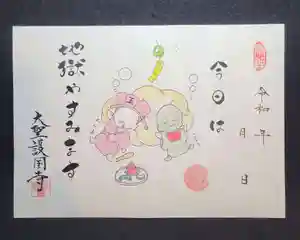 令和 年
月 日
今日は
地獄やすみます
大聖護国寺